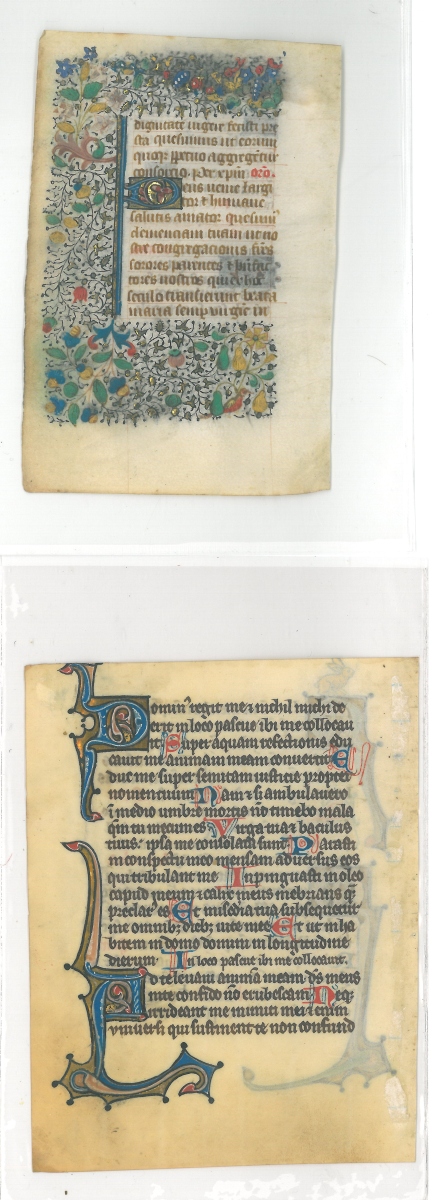 dignitate
sta quesumus ut eorum
quoqꝫ perpetuo aggregetur
consortio. Per xpm̄ oro.
Deus venie largi
tor & humane
salutis amator quesum'
clemenciam tuam ut no
stre congregacionis frēs
sorores parentes &
tores nostros qui ex hoc
seculo transierunt beata
maria semp virgīe in
Domin' regit me & nichil michi de
erit in loco pascue ibi me collocau
it Super aquam refectionis edu
cauit me animam meam conuertit E
duxit me super semitam iusticie propter
nomen tuum Nam & si ambulauero
ī medio umbre mortis nō timebo mala
qm̄ tu mecum es Virga tua & baculus
tuus: ipsa me consolata sunt Parasti
in conspectu meo mensam aduersus eos
qui tribulant me Inpinguasti in oleo
caput meum & calix meus inebrians q̄
preclar' es Et misc̄dia tua subsequetur
me omnibꝫ diebꝫ uite mee Et ut inha
bitem in domo domini in longitudine
dierum In loco pascue ibi me collocauit.
Ad te leuaui animā meam ds̄ meus
in te confido nō erubescam Neqꝫ
irrideant me inimici mei & enim
vniuersi qui sustinent te non confund